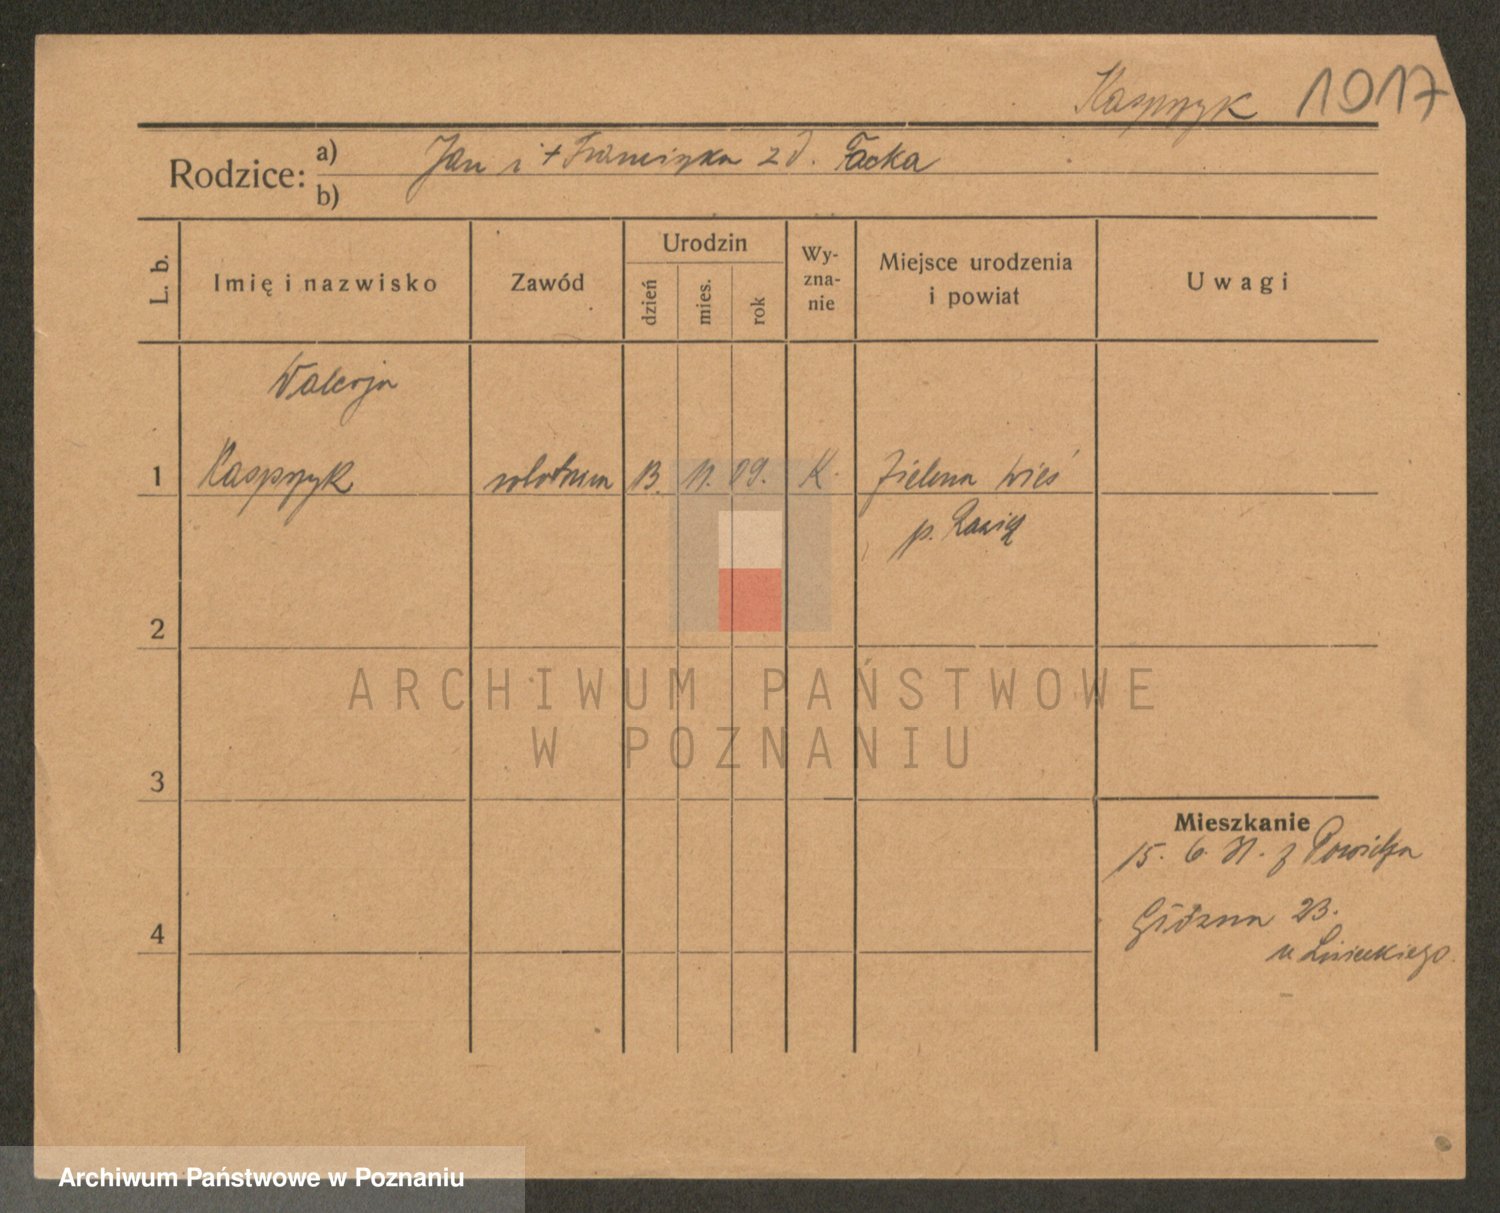 Kasprzyk 1017
Rodzice: a) Jan i + Franciszka z d. Facka
b)
L. b.
Imię i nazwisko
Zawód
Urodzin
dzień
mies.
rok
Wy-
zna-
nie
Miejsce urodzenia
i powiat
Uwagi
Walerja
1 Kasprzyk robotnica 13. 11. 09. K. Zielona Wieś
p. Rawicz
2
3
4
Mieszkanie
15. 6. 31. z Powidza
Główna 23.
u Lisieckiego.
ARCHIWUM PAŃSTWOWE
W POZNANIU
Archiwum Państwowe w Poznaniu